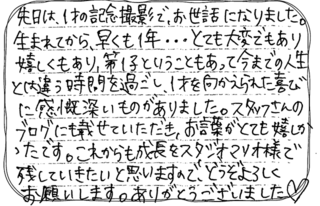 先日は、1才の記念撮影で、お世話になりました。
生まれてから、早くも1年・・・とても大変でもあり
嬉しくもあり、第1子ということもあって今までの人生
とは違う時間を過ごし、1才を向かえられた喜び
に感慨深いものがありました。スタッフさんの
ブログにも載せていただき、お言葉がとても嬉しか
ったです。これからも成長をスタジオマリオ様で
残していきたいと思いますので、どうぞよろしく
お願いします。ありがとうございました♡